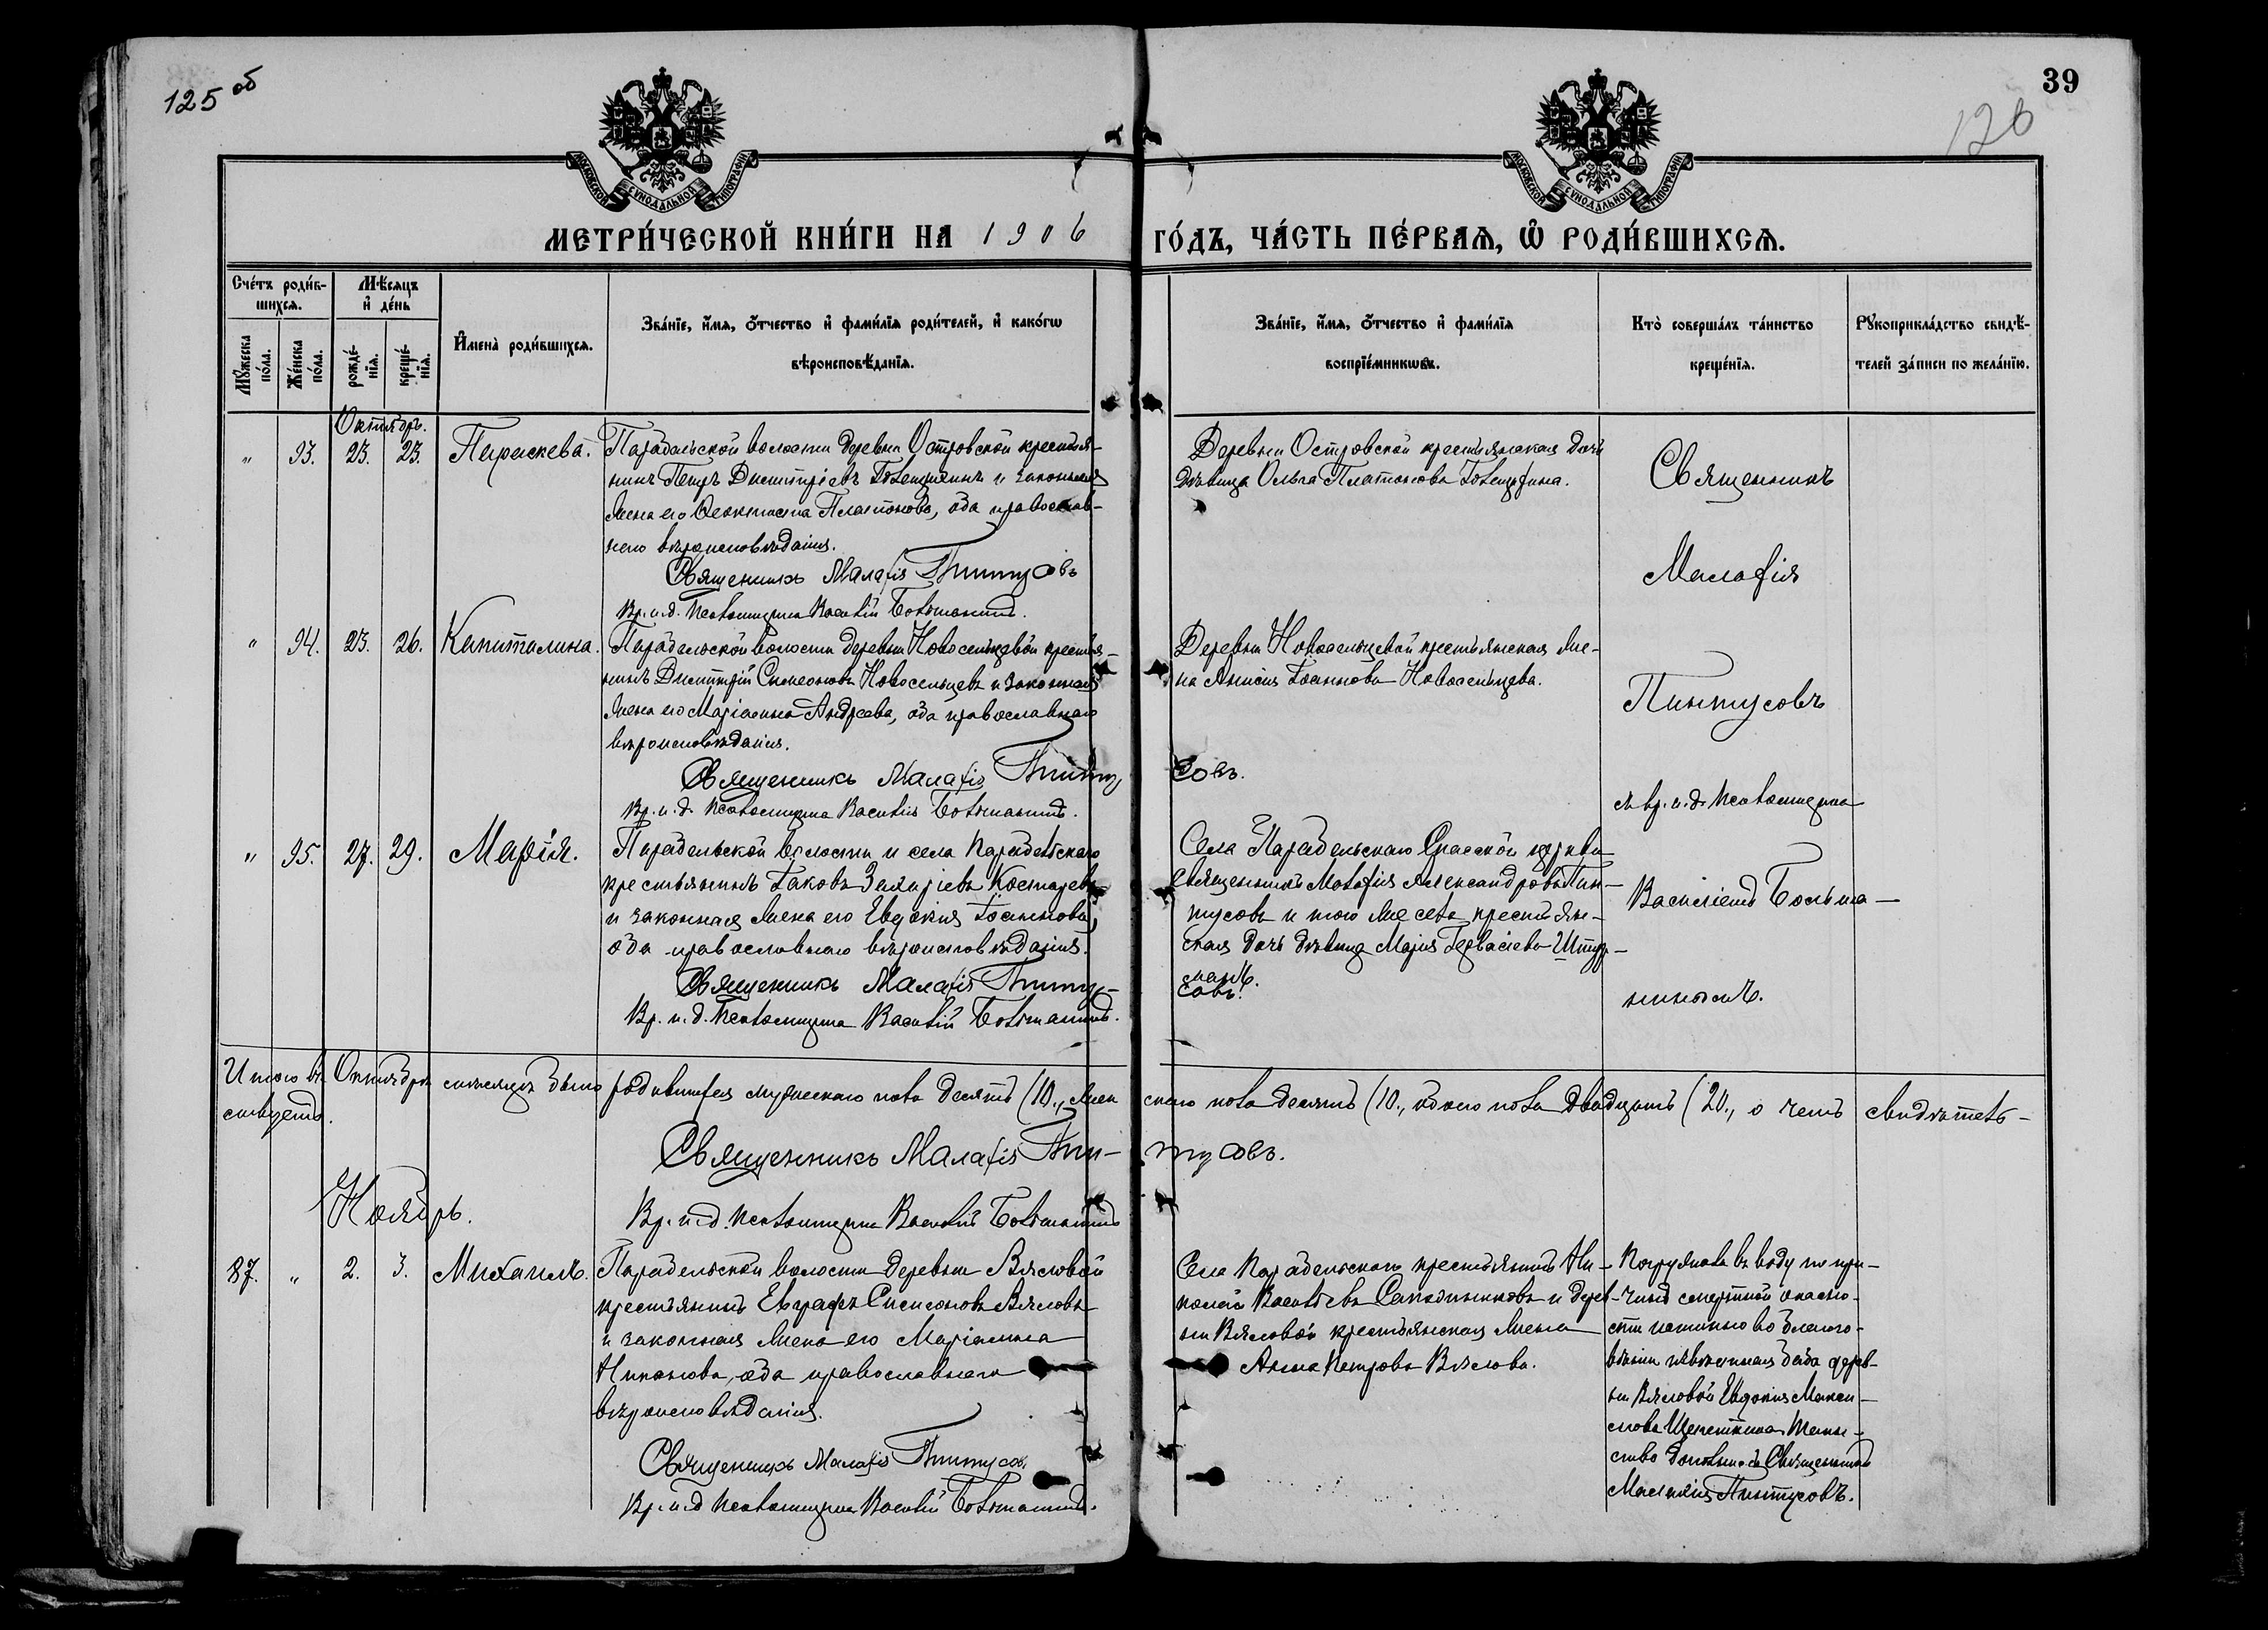 125 об
39
126
МОСКОВСКОЙ СѴНОДАЛЬНОЙ ТИПОГРАФІИ
МОСКОВСКОЙ СѴНОДАЛЬНОЙ ТИПОГРАФІИ
МЕТРИ́ЧЕСКОЙ КНИ́ГИ НА 1906 ГО́ДЪ, ЧА́СТЬ ПЕ́РВАѦ, Ѽ РОДИ́ВШИХСѦ.
Сче́тъ роди́в-
шихсѧ.
Мѣ́сѧцъ
и҆ де́нь
Мꙋ́жеска
по́ла.
Же́нска
по́ла.
рожде́-
нїѧ.
креще́-
нїѧ.
И҆мена̀ роди́вшихсѧ.
Зва́нїе, и҆́мѧ, ѻ҆́тчество и҆ фами́лїѧ роди́телей, и҆ како́гѡ
вѣроисповѣ́данїѧ.
Зва́нїе, и҆́мѧ, ѻ҆́тчество и҆ фами́лїѧ
воспрїе́мникѡвъ.
Кто̀ соверша́лъ та́инство
креще́нїѧ.
Рꙋкоприкла́дство свидѣ́-
телей за́писи по жела́нїю.
Октябрь.
" 93. 23. 23. Параскева.
Парабельской волости деревни Островской крестья-
нинъ Петръ Димитріевъ Голещихинъ и законная
жена его Феоктиста Платонова, оба православ-
наго вѣроисповѣданія.
Священникъ Малафій Пинтусовъ
Вр. и. д. Псаломщика Василій Большанинъ.
Деревни Островской крестьянская дочь
дѣвица Ольга Платонова Голещихина.
Священникъ
Малафій
Пинтусовъ
съ вр. и. д. Псаломщика
Василіемъ Больша-
нинымъ.
" 94. 23. 26. Капиталина.
Парабельской волости деревни Новосельцевой крестья-
нинъ Димитрій Симеоновъ Новосельцевъ и законная
жена его Маріамна Андреева, оба православнаго
вѣроисповѣданія.
Священникъ Малафій Пинтусовъ.
Вр. и. д. Псаломщика Василій Большанинъ.
Деревни Новосельцевой крестьянская же-
на Анисія Іоаннова Новосельцева.
" 95. 27. 29. Марія.
Парабельской волости и села Парабельскаго
крестьянинъ Іаковъ Захаріевъ Костаревъ
и законная жена его Евдокія Іоаннова,
оба православнаго вѣроисповѣданія.
Священникъ Малафій Пинту-
совъ.
Вр. и. д. Псаломщика Василій Большанинъ.
Села Парабельскаго Спасской церкви
священникъ Малафій Александровъ Пин-
тусовъ и того же села крестьян-
ская дочь дѣвица Марія Гервасіева Штур-
манъ.
Итого въ Октябрѣ мѣсяцѣ было родившихся мужескаго пола десять (10., жен
скаго пола десять (10., обоего пола двадцать (20., о чемъ свидѣтель-
ствуетъ.
Священникъ Малафій Пин-
тусовъ.
Вр. и. д. Псаломщика Василій Большанинъ
Ноябрь.
87. " 2. 3. Михаилъ.
Парабельской волости деревни Вяловой
крестьянинъ Евграфъ Симеоновъ Вяловъ
и законная жена его Маріамна
Никонова, оба православнаго
вѣроисповѣданія.
Священникъ Малафій Пинтусовъ.
Вр. и. д. Псаломщика Василій Большанинъ.
Села Парабельскаго крестьянинъ Ни-
колай Васильевъ Сапожниковъ и дерев-
ни Вяловой крестьянская жена
Анна Петрова Вялова.
Погружала въ воду по при-
чинѣ смертной опасно-
сти
баба дерев-
ни Вяловой Евдокія Макси-
мова Таин-
ство Священникъ
Малафій Пинтусовъ.